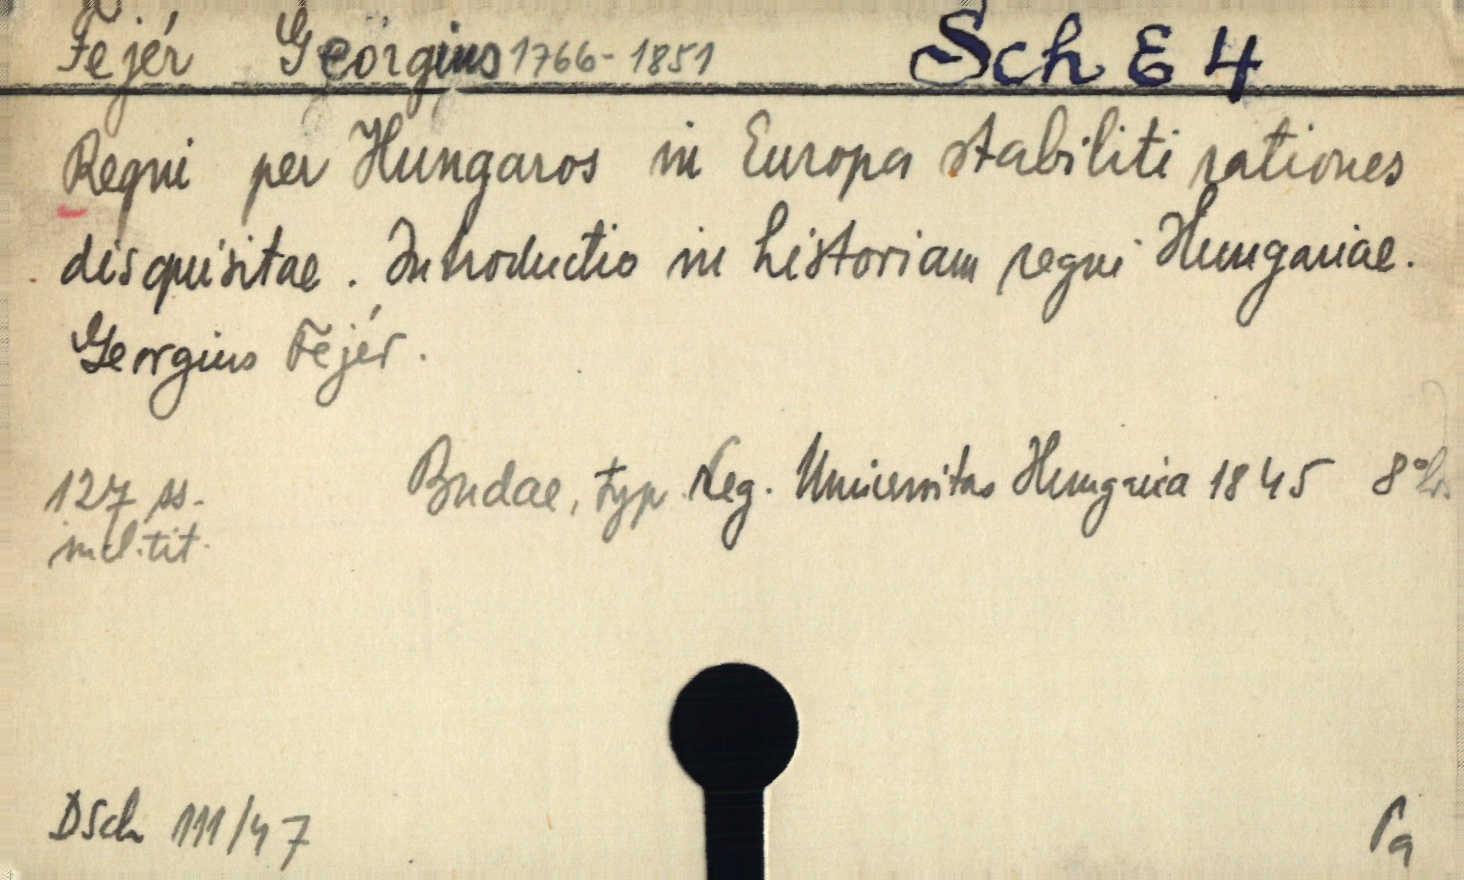 Fejér Georgius 1766-1851 Sch E 4
Regni per Hungaros in Europa stabiliti rationes
disquisitae. Introductio in historiam regni Hungariae.
Georgius Fejér.
127 ss. Budae, typ. Reg. Universitas Hungarica 1845 8°
incl. tit.
DSch 111/47